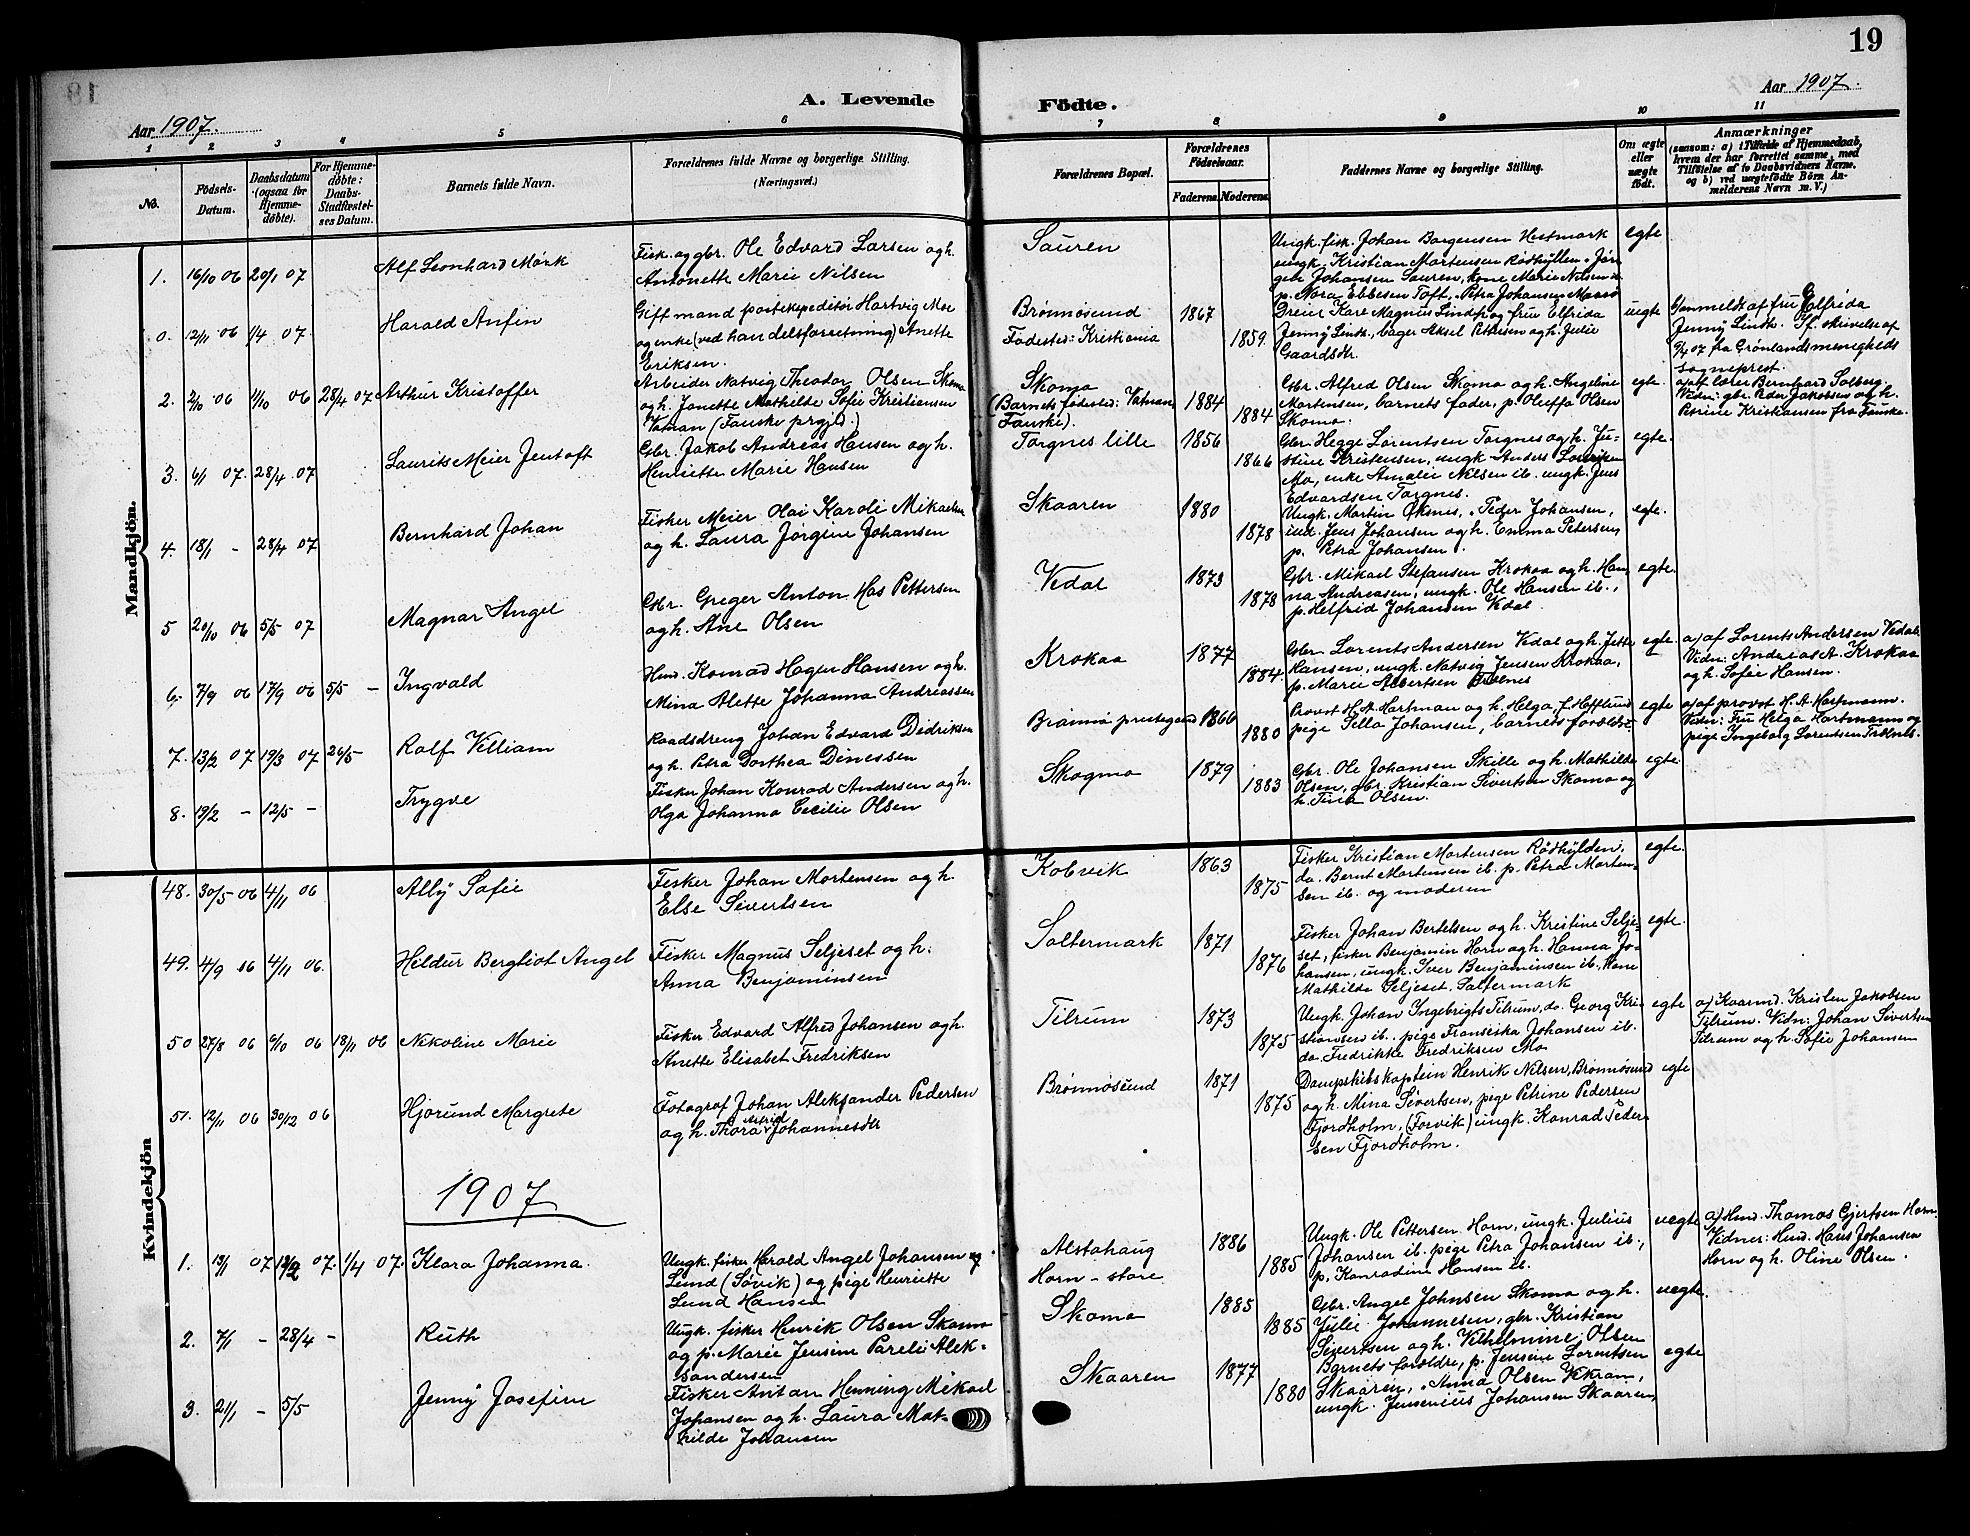 19
A. Levende Födte.
Aar 1907.
Aar 1907.
1 2 3 4 5 6 7 8 9 10 11
No.
Födsels-Datum.
Daabsdatum (ogsaa for Hjemmedöbte).
For Hjemmedöbte: Daabs-Stadfæstelses Datum.
Barnets fulde Navn.
Forældrenes fulde Navne og borgerlige Stilling.
(Næringsvei.)
Forældrenes Bopæl.
Forældrenes Födselsaar.
Faderens. Moderens.
Faddernes Navne og borgerlige Stilling.
Om ægte eller uægte födt.
Anmærkninger
(saasom: a) i Tilfælde af Hjemmedaab, hvem der har forrettet samme, med Tilföielse af to Daabsvidners Navne, og b) ved uægtefödte Börn Anmelderens Navn m. V.)
Mandkjön.
1. 16/10 06 20/1 07 Alf Leonhard Mörk
Fisk. og gbr. Ole Edvard Larsen og h.
Antonette Marie Nilsen
Sauren
Ungk. fisk. Johan Borgensen Hestmark
ungk. Kristian Mortensen Rødhyllen, Jør-
gen Johansen Sauren, kone Marie Nilsen
p. Nora Ebbesen Toft, Petra Johansen
egte
0. 12/11 06 1/4 07 Harald Anfin
Gift mand postexpeditør Hartvig Moe
og enke (ved handelsforretning) Anette
Eriksen.
Brønnøsund
Fødested: Kristiania
1867
1859
Greier Kare Magnus Lindh og fru Elfrida
Jenny Lindh, bager Aksel Pettersen og h. Julie
Gaardsdtr.
uegte
Anmeldt af fru Elfrida
Jenny Lindh. If. skrivelse af
9/4 07 fra Grønlands menigheds
sogneprest.
2. 2/10 06 1/10 06 28/4 07 Arthur Kristoffer
Arbeider Natvig Theodor Olsen Skomo
og h. Janette Mathilde Sofie Kristiansen
Vatnan (Fauske prgjld.)
Skomo
(Barnets fødested: Vatnan
Fauske).
1884
1884
Gbr. Alfred Olsen Skomo og h. Angeline
Mortensen, barnets fader, p. Oluffa Olsen
Skomo.
egte.
a) af lærer Bernhard Solberg.
Vidn: gbr. Peder Jakobsen og h.
Petrine Kristiansen fra Fauske.
3. 6/1 07. 28/4 07 Laurits Meier Jentoft
Gbr. Jakob Andreas Hansen og h.
Henriette Marie Hansen
Torgnes lille
1856
1866
Gbr. Hegge Lorentsen Torgnes og h. Ju-
stine Kristensen, ungk. Anders Lorentsen
Mo, enke Amalie Nilsen ib. ungk. Jens
Edvardsen Torgnes.
egte.
4. 18/1 - 28/4 07 Bernhard Johan
Fisker Meier Olai Karoli Mikaelsen
og h. Laura Jørgine Johansen
Skaaren
1880
1878
Ungk. Martin Øksnes, Peder Johansen,
ind. Jens Johansen og h. Emma Petersen,
p. Petra Johansen.
egte.
5 20/10 06 5/5 07 Magnar Angel
Gbr. Greger Anton Has Pettersen
og h. Ane Olsen
Vedal
1873
1878
Gbr. Mikael Stefansen Krokaa og h. Han-
na Andreasen, ungk. Ole Hansen ib.,
p. Helfrid Johansen Vedal.
egte.
6. 7/9 06 17/9 06 5/5 - Ingvald
Hmd. Konrad Hagen Hansen og h.
Mina Alette Johanna Andreassen
Krokaa
1877
1884.
Gbr. Lorents Andersen Vedal og h. Jette
Hansen, ungk. Natvig Jensen Krokaa,
p. Marie Albertsen
egte.
a) af Lorents Andersen Vedal.
Vidn: Andreas A. Krokaa
og h. Sofie Hansen.
7. 13/2 07 19/3 07 26/5 Rolf Villiam
Raadsdreng Johan Edvard Didriksen
og h. Petra Dorthea Dinessen
Brønnø prestegaard
1866
1880
Provst H. A. Hartman og h. Helga, f. Hofflund
pige Silla Johansen, barnets forældre
egte
a) af provst H. A. Hartmann.
Vidn: Fru Helga Hartmann og
pige Ingeborg Lorentsen
8. 19/2 - 12/5 - Trygve
Fisker Johan Konrad Andersen og h.
Olga Johanna Cecilie Olsen
Skogmo
1879
1883
Gbr. Ole Johansen Skille og h. Mathilde
Olsen, gbr. Kristian Sivertsen Skomo og
h. Tina Olsen.
egte.
Kvindekjön
48. 30/5 06 4/11 06 Ally Sofie
Fisker Johan Mortensen og h.
Else Sivertsen
Kobvik
1863
1875
Fisker Kristian Mortensen Rødhylden,
do. Bernt Mortensen ib. p. Petra Morten-
sen ib. og moderen
egte.
49. 4/9 06 4/11 06. Heldur Bergliot Angel
Fisker Magnus Seljeset og h.
Anna Benjaminsen
Saltermark
1871
1876
Fisker Johan Bertelsen og h. Kristine Selje-
set, fisker Benjamin Horn og h. Hanna Jo-
hansen, ungk. Iver Benjaminsen ib., kone
Mathilde Seljeset, Saltermark
egte.
50 27/8 06 6/10 06 18/11 06 Nikoline Marie
Fisker Edvard Alfred Johansen og h.
Anette Elisabet Fredriksen
Tilrum
1873
1875
Ungk. Johan Ingebrigts Tilrum, do. Georg Kri-
stiansen ib., pige Fransiska Johansen ib.
do. Fredrikke Fredriksen Mo
egte
a) Kaarmd. Kristen Jakobsen
Tilrum. Vidn: Johan Sivertsen
Tilrum og h. Sofie Johansen
51. 12/11 06 30/12 06 Hjørund Margrete
Fotograf Johan Aleksander Pedersen
og h. Thora Astrid Johannesdtr
Brønnøsund
1871
1875
Dampskibskaptein Henrik Nilsen, Brønnøsund
og h. Mina Sivertsen, pige Petrine Pedersen
Fjordholm, (Forvik) ungk. Konrad Peder-
sen Fjordholm.
egte
1907
1. 13/1 07 19/2 07. 1/4 07. Klara Johanna.
Ungk. fisker Harald Angel Johansen
Lund (Søvik) og pige Henriette
Lund Hansen
Alstahaug
Horn - store
1886
1885
Ungk. Ole Pettersen Horn, ungk. Julius
Johansen ib. pige Petra Johansen ib.,
p. Konradine Hansen ib.
uegte
a) Hmd. Thomas Gjertsen Horn.
Vidner: Hmd. Hans Johansen
Horn og h. Oline Olsen.
2. 7/1 - 28/4 - Ruth
Ungk. fisker Henrik Olsen Skomo
og p. Marie Jensine Pareli Alek-
sandersen
Skomo
1885
1885
Gbr. Angel Johnsen Skomo og h.
Julie Johannesen, gbr. Kristian
Sivertsen og h. Vilhelmine Olsen
Barnets forældre, p. Jensine Lorentsen
uegte.
3. 21/1 - 5/5 Jenny Josefine
Fisker Anton Henning Mikael
Johansen og h. Laura Mat-
hilde Johansen
Skaaren
1877
1880
Skaaren, Anna Olsen Vikran,
ungk. Jensenius Johansen Skaaren,
egte